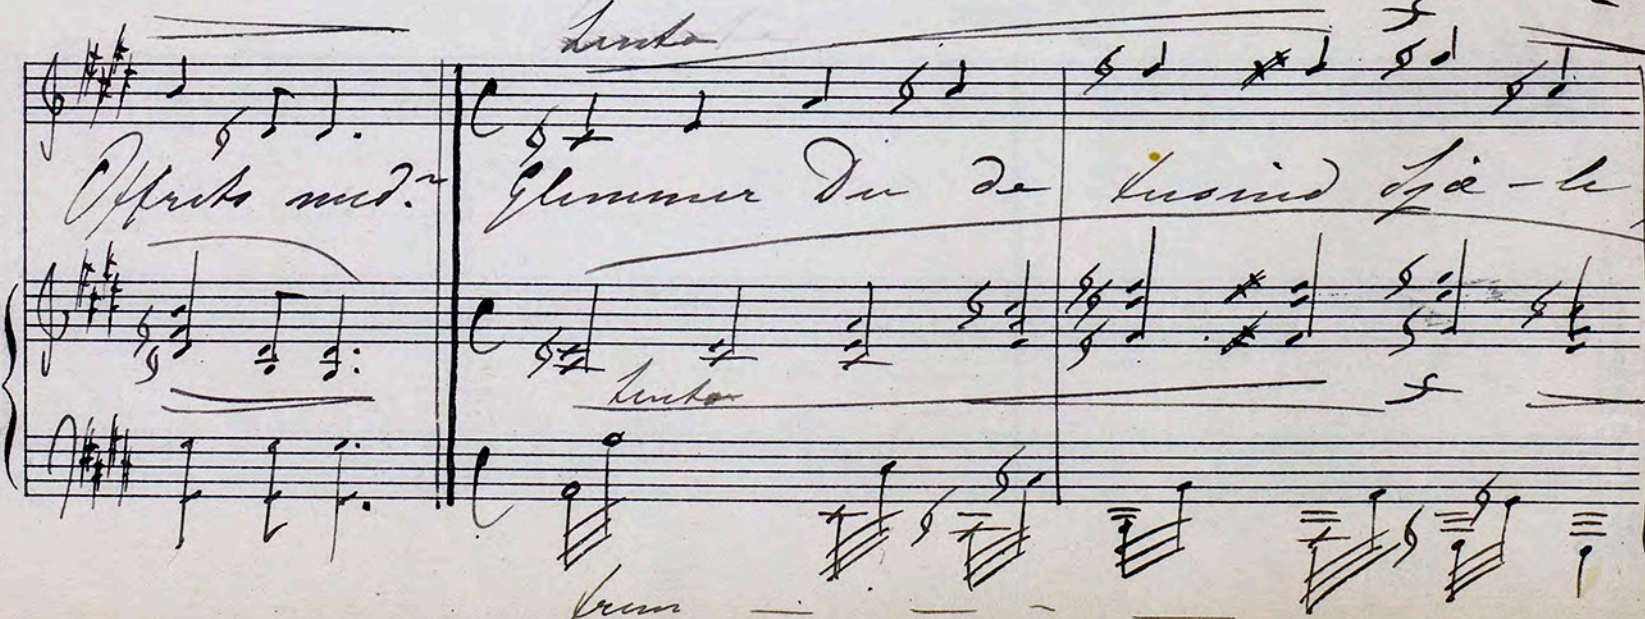 Lento
Offrets med? Glemmer Du de tusind Sjæ-le
Lento
trem